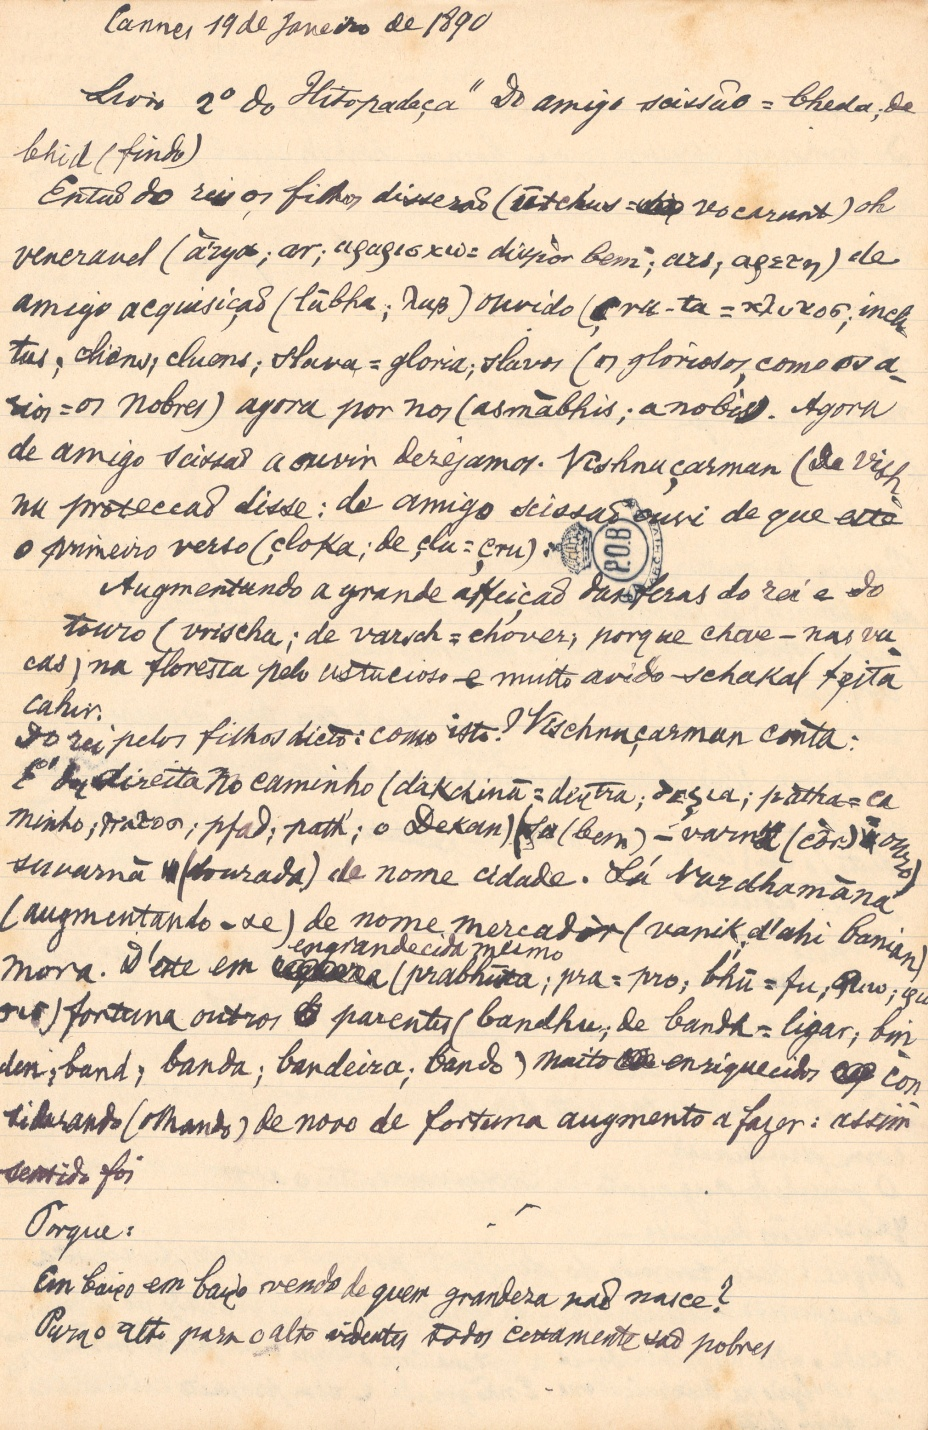 Cannes 19 de Janeiro de 1890
Livro 2º do Hitopadeça" Do amigo scissão = bheda, de
bhid (findo)
Então do rei os filhos disserão (ūtchus = vocarunt) oh
veneravel (ārya; ar; αραρισκω = dispôr bem; ars; αρετη) de
amigo acquisição (lābha; λαβ) ouvido (çru-ta = κλυτος; incly
tus; cliens; cluens; slava = gloria; slavos (os gloriosos, como os a-
rios = os nobres) agora por nos (asmābhis; a nobis). Agora
de amigo scissão a ouvir dezejamos. Vishnuçarman (De Vish-
nu protecção disse: de amigo scissão ouvi de que este
o primeiro verso (çloka; de çlu = çru).
P.O.B
Augmentando a grande affeição das feras do rei e do
touro (vrischa; de varsch = chover; porque chove - nas va
cas) na floresta pelo astucioso e muito avido schakal feita
cahir.
Do rei pelos filhos dicto: como isto? Vischnuçarman conta:
direita no caminho (dakchinā = dextra; δεξια; patha = ca
minho; πατος; pfad; path; o Dekan) (bem) - varna (côr) ouro)
suvarnā (dourada) de nome cidade. Lá Vardhamāna
(augmentando-se) de nome mercador (vanik; d'ahi banian)
engrandecida mesmo
mora. D'este em (prabhūta; pra = pro; bhū = fu;
fortuna outros parentes (bandhu; de bandh = ligar; bin
den; band; banda; bandeira; bando) muito enriquecidos con
siderando (olhando) de novo de fortuna augmento a fazer: assim
sentido foi
Porque:
Em baixo em baixo vendo de quem grandeza não nasce?
Para o alto para o alto videntes todos certamente são pobres